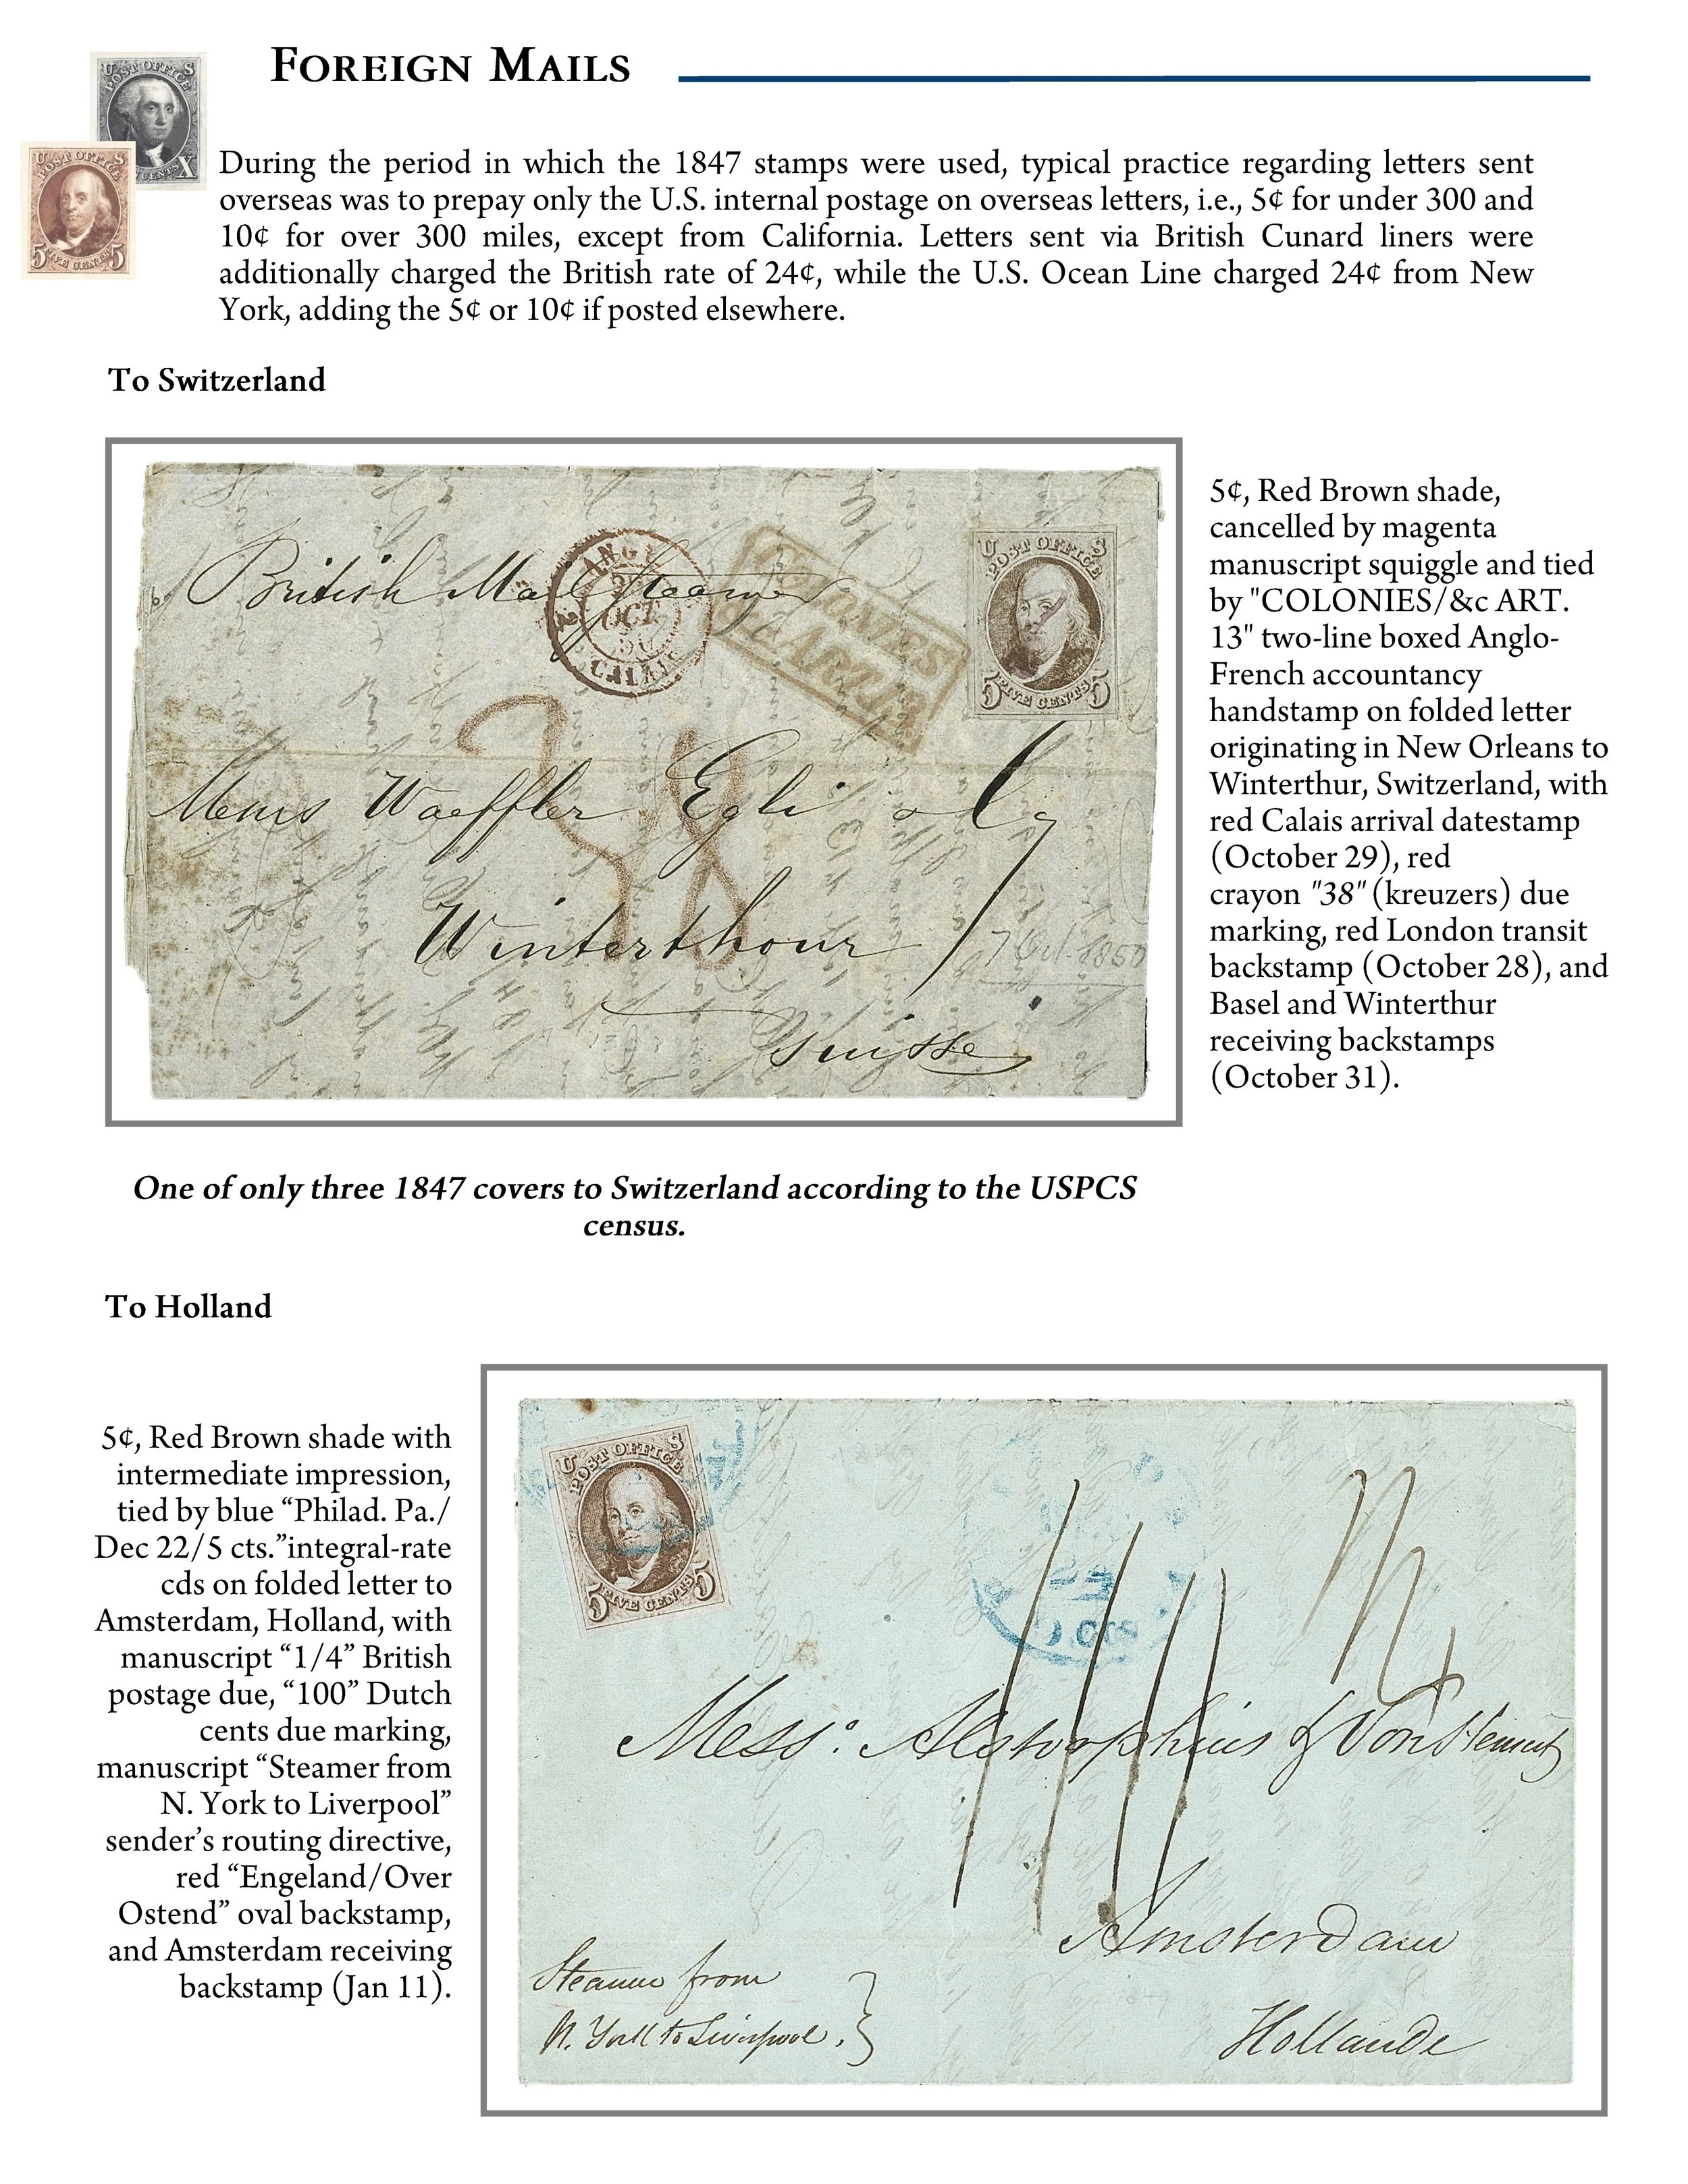 FOREIGN MAILS
U S
POST OFFICE
CENTS X
U S
POST OFFICE
5 FIVE CENTS 5
During the period in which the 1847 stamps were used, typical practice regarding letters sent
overseas was to prepay only the U.S. internal postage on overseas letters, i.e., 5¢ for under 300 and
10¢ for over 300 miles, except from California. Letters sent via British Cunard liners were
additionally charged the British rate of 24¢, while the U.S. Ocean Line charged 24¢ from New
York, adding the 5¢ or 10¢ if posted elsewhere.
To Switzerland
British Mail Steamer
ANGL.
OCT
50
CALAIS
COLONIES
&c ART.13
U S
POST OFFICE
5 FIVE CENTS 5
38
Messrs Waeffler Egli & Cy
Winterthour
7 Oct. 1850
Suisse
5¢, Red Brown shade,
cancelled by magenta
manuscript squiggle and tied
by "COLONIES/&c ART.
13" two-line boxed Anglo-
French accountancy
handstamp on folded letter
originating in New Orleans to
Winterthur, Switzerland, with
red Calais arrival datestamp
(October 29), red
crayon "38" (kreuzers) due
marking, red London transit
backstamp (October 28), and
Basel and Winterthur
receiving backstamps
(October 31).
One of only three 1847 covers to Switzerland according to the USPCS
census.
To Holland
5¢, Red Brown shade with
intermediate impression,
tied by blue “Philad. Pa./
Dec 22/5 cts.”integral-rate
cds on folded letter to
Amsterdam, Holland, with
manuscript “1/4” British
postage due, “100” Dutch
cents due marking,
manuscript “Steamer from
N. York to Liverpool”
sender’s routing directive,
red “Engeland/Over
Ostend” oval backstamp,
and Amsterdam receiving
backstamp (Jan 11).
U S
POST OFFICE
5 FIVE CENTS 5
1/4
Mess:
Amsterdam
Hollande
Steamer from
N. York to Liverpool.